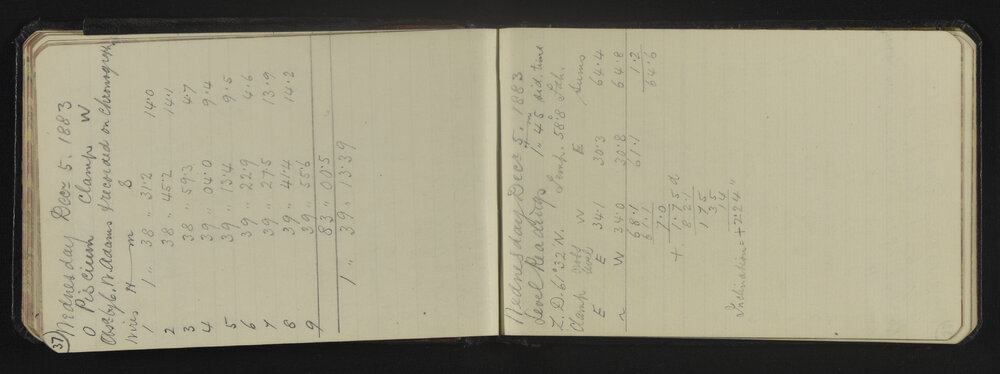 37
Wednesday Decr 5. 1883
O Piscium Clamp W
Obsr by C. W. Adams & recorded on Chronograph
Wires H m s
1 1 " 38 " 31.2 14.0
2 38 " 45.2 14.1
3 38 " 59.3 4.7
4 39 " 04.0 9.4
5 39 " 13.4 9.5
6 39 " 22.9 4.6
7 39 " 27.5 13.9
8 39 " 41.4 14.2
9 39 " 55.6
83 " 00.5
1 " 39 " 13.39
Wednesday Decr 5. 1883
Level Readings 1h " 45m sid. time
Z. D. 61° 32 N. Temp. 58°.8 Fah.
Clamp Level W E Sums
E E 34.1 30.3 64.4
W 34.0 30.8 64.8
68.1 61.1 1.2
61.1 64.6
7.0
+ 1.75 d
175
35
14
Inclination = + 7.24 "